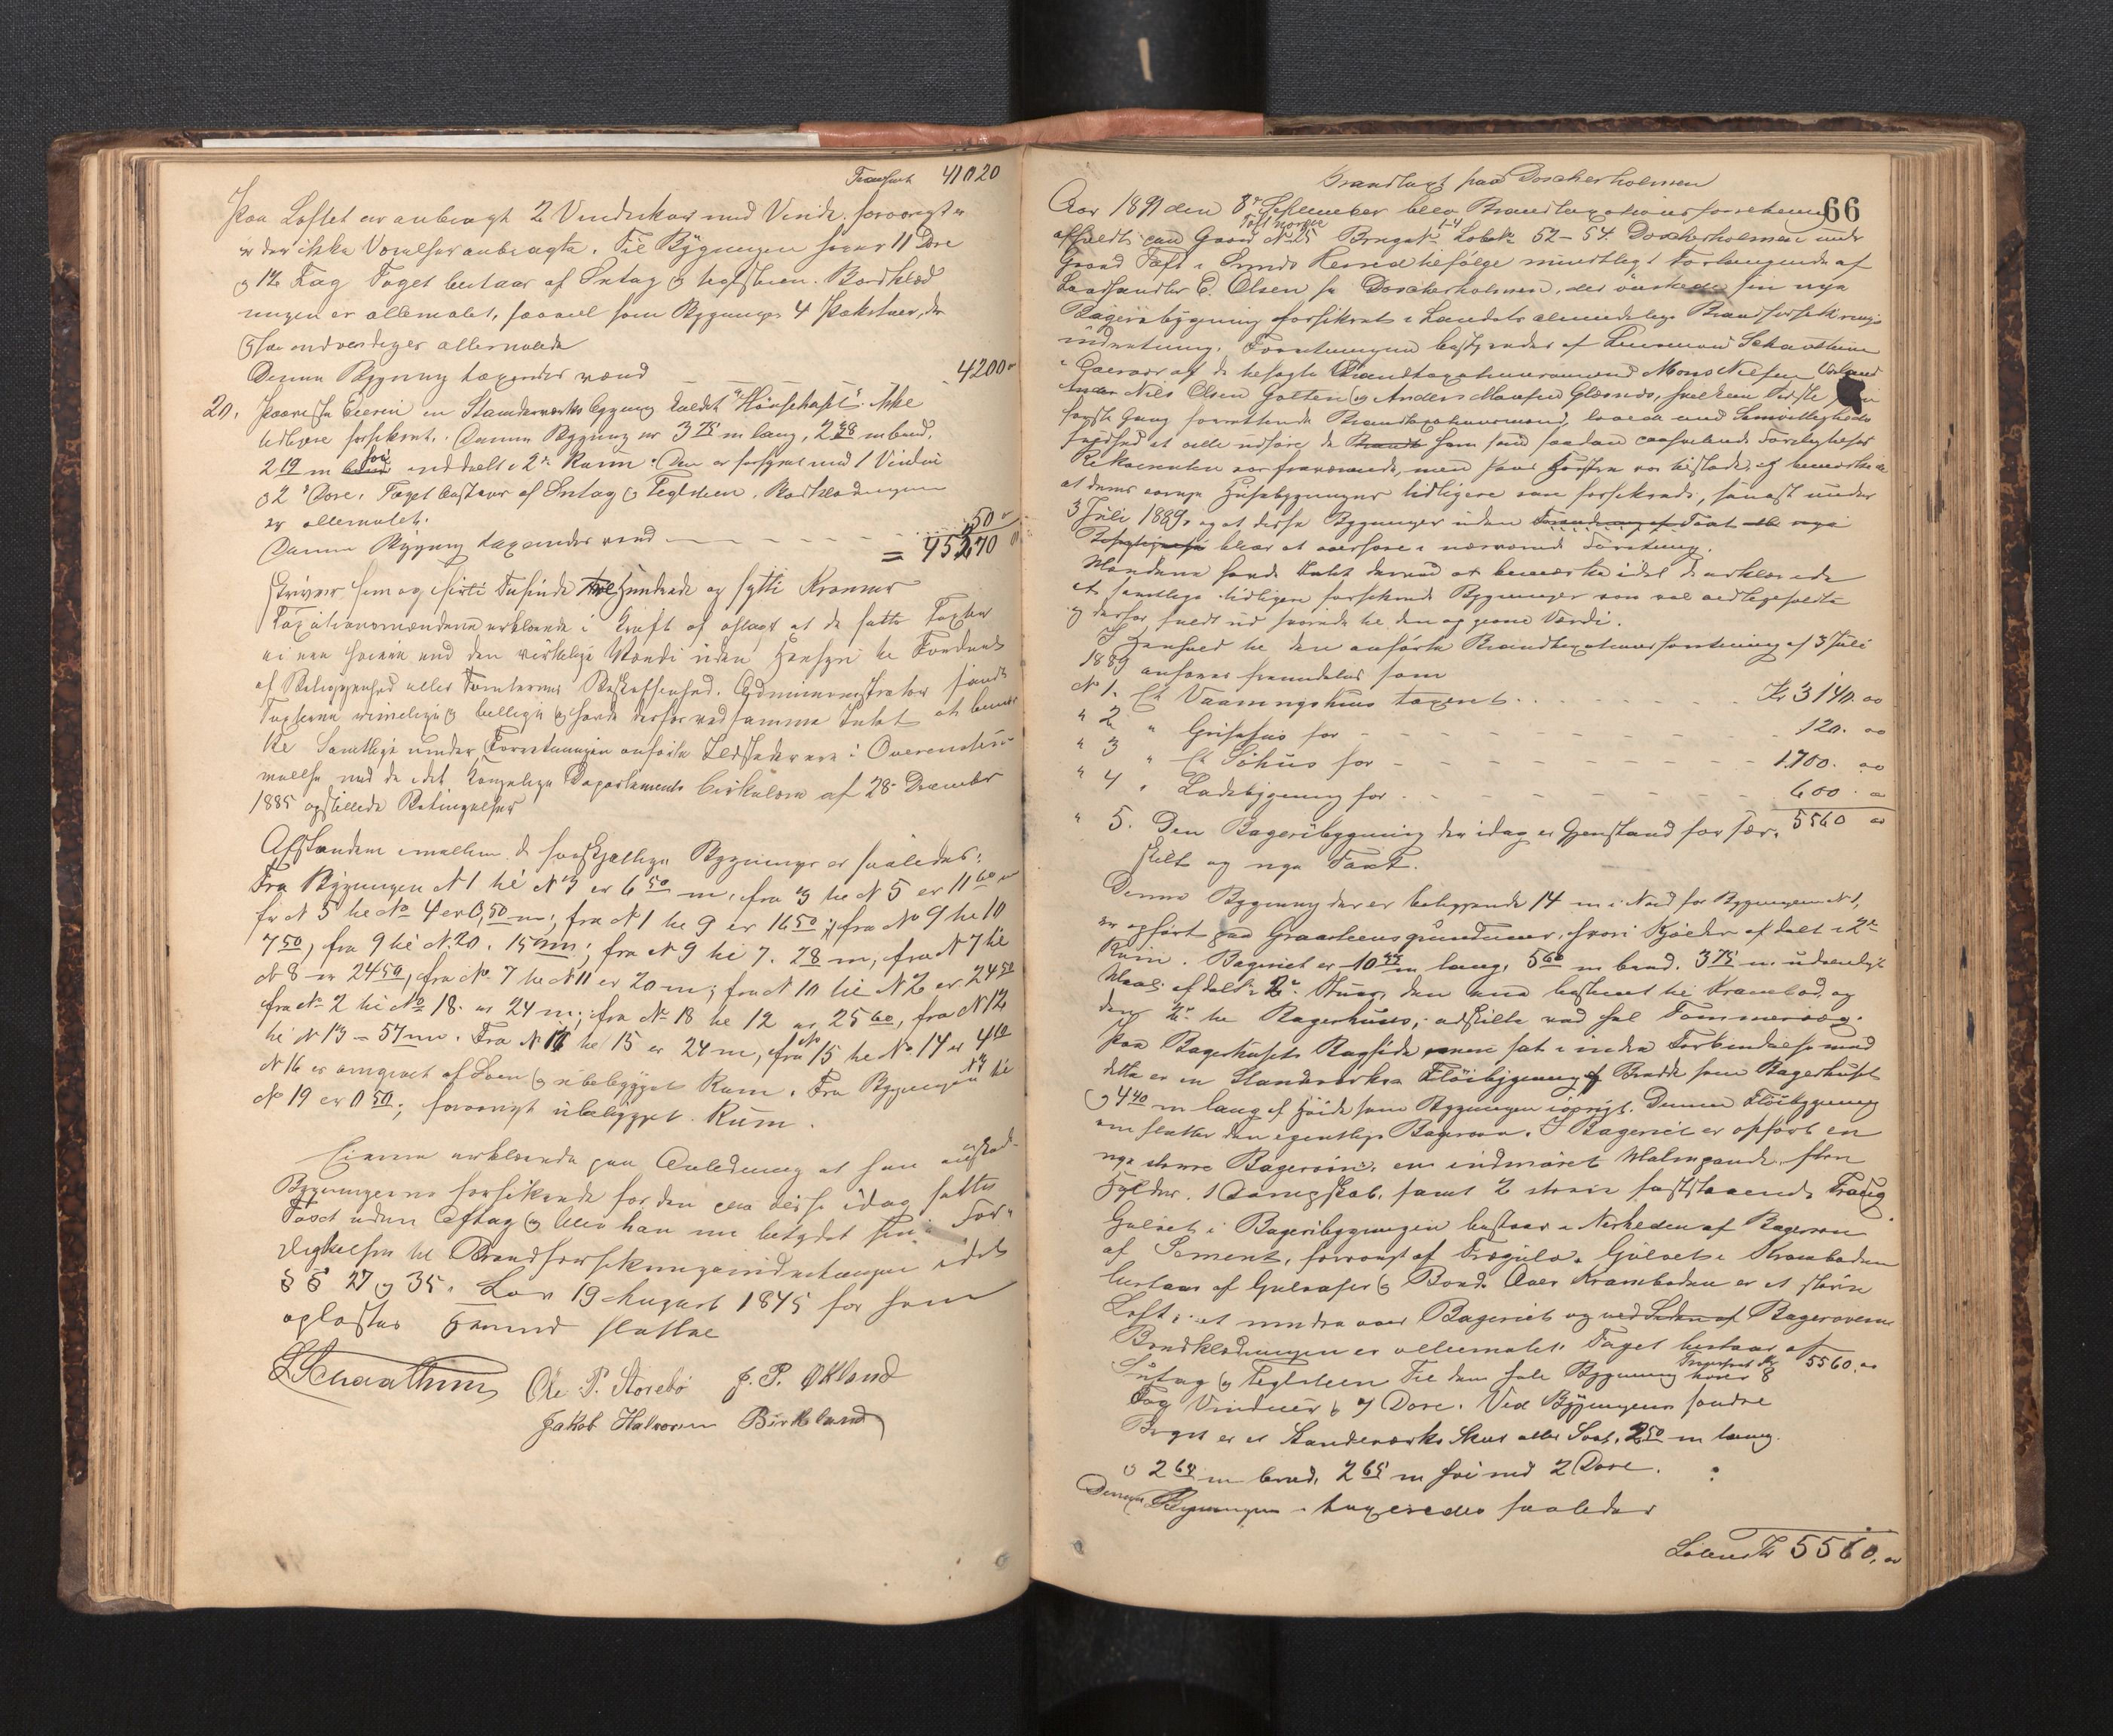 Transport 41020
Paa Loftet er anbragt 2 Vindskar med Vinde. forøvrigt
er der ikke Værelser anbragte. Til Bygningen hører 11 Døre
og 12 Fag Taget bestaar af Sutag og teglsteen. Bordklæd
ningen er oliemalet, saavel som Bygningens 4
indvendiges oliemalede
Denne Bygning taxeredes med 4200
20. en Standerværks bygning kaldet "Hønsehuset". Ikke
tidligere forsikret. Denne Bygning er 3 75 m lang, 2 m bred,
2 19 m høi inddeelt i 2de Rum. Den er forsynet med 1 Vindue
og 2 Døre. Taget bestaar af Sutag og Teglsteen. Bordklædningen
er oliemalet.
Denne Bygning taxeredes med 50
= 45270
skriver fem og firti Tusinde to Hundrede og sytti Kroner
Taxationsmændene erklærede i Kraft af aflagt at de satte Taxter
ei var høiere end den virkelige Værdi uden Hensyn til Tomtens
Beliggenhed eller Tomternes Beskaffenhed. Administrator fandt
Taxterne rimelige og billige og havde derfor ved samme Intet at bemær
ke Samtlige under Forretningen anførte Ildsteder var i Overensstem
melse med de i det Kongelige Departements Cirkulære af 28 December
1885 opstillede Betingelser
Afstandene imellem de forskjellige Bygninger er saaledes:
Fra Bygningen N 1 til N 3 er 6 50 m, fra 3 til N 5 er 11 60 m
fra N 5 til No 4 er 0,50 m; fra N 1 til 9 er 16 50; fra No 9 til 10
7 50, fra 9 til N. 20. 15 m; fra N 9 til 7. 28 m, fra N 7 til
N 8 er 24 50, fra No 7 til N 11 er 20 m; fra N 10 til N 2 er 24 50
fra No 2 til No 18. er 24 m; fra No 18 til 12 er 25 60, fra N 12
til N 13 - 57 m. Fra N 16 til 15 er 24 m, fra No 15 til No 14 er 4 60
N 16 er omgivet af Haven og ubebygget Rum. Fra Bygningen N til
No 19 er 0 50; forøvrigt ubebygget Rum.
Eieren erklærede paa Anledning at han ønskede
Bygningerne forsikrede for den paa disse idag satte
Taxt uden Aftag og blev han nu betydet sine For-
pligtelser til Brandforsikringsindretningen idet
§ § 27 og 35. Lov 19 August 1845 for ham
oplæstes Hermed sluttet
Ole P. Storebø J. P. Økland
Jakob Halvorsen Birkeland
Brandtaxt paa Døscherholmen
66
Aar 1891 den 8de September blev Brandtaxationsforretning
afholdt paa Gaard No 25 Brugs No Løbe No 52 – 54 Døscherholmen under
Gaard Toft i Sunds Herred ifølge mundtligt Forlangende af
Landhandler C. Olsen fra Døscherholmen, der ønskede sin nye
Bageribygning forsikret i Landets almindelige Brandforsikrings
indretning. Forretningen bestyredes af Lensmand
i Overvær af de befegte Brandtaxationsmænd Mons Nilsen
Nils Olsen Golten og Anders Monsen Glesnes, hvilken sidste
første Gang forrettende Brandtaxationsmand, lovede med Samvittigheds
fuldhed at ville udføre de ham som saadan paahvilende Forpligtelser
Rekvirenten var fraværende, men hans Hustru var tilstede, og bemærkede
at deres øvrige Huse bygninger tidligere var forsikrede, senest under
3 Juli 1889, og at disse Bygninger uden Forandring af Taxt
blev at overføre i nærværende Forretning.
Mændene havde Intet derved at bemærke idet de erklærede
at samtlige tidligere forsikrede Bygninger var vel vedligeholdte
og derfor fuldt ud svarede til den opgivne Værdi.
I Henhold til den anførte Brandtaxationsforretning af 3 Juli
1889 anføres fremdeles som
No 1. Et Vaaningshus taxeret Kr 3140.00
" 2 " Grisehus for 120.00
" 3 " Et Søhus for 1700.00
" 4 " Ladebygning for 600.00
" 5. Den Bageribygning der idag er Gjenstand for sær- 5560 00
skilt og nye Taxt.
Denne Bygning der er beliggende 14 m i Nord for Bygningen N 1,
er opført paa Graasteens grundmur, hvori Kjælder afdelt i 2de
Rum. Bageriet er 10 m lang, 5 60 m bred. 3 75 m udvendigt
Maal; afdelt i 2de Stuer, den ene bestemt til Krambod og
den 2de til Bagerhuus, adskilte ved hel Tømmervæg.
Paa Bagerhusets Bagside men sat i indre Forbindelse med
dette er en Standværks Fløibygning af Bredde som Bagerhuset
og 4 40 m lang af Høide som Bygningen iøvrigt. Denne Fløibygning
omslutter den egentlige Bagerovn. I Bageriet er opført en
nye større Bagerovn, en indmuret Malmpande, flere
Hylder. 1 Dampskab. samt 2 større faststaaende Traug.
Gulvet i Bageribygningen bestaar i Nærheden af Bagerovn
af Sement, forøvrigt af Trægulv. Gulvet i Kramboden
bestaar af Gulvaser og Bord. Over Kramboden er et større
Loft; et mindre over Bageriet og ved Siden af Bagerovnen
Bordklædningen er oliemalet. Taget bestaar af
Sutag og Teglsteen Til den hele Bygning hører 8 Transport Kr 5560.00
Fag Vinduer og 7 Døre. Ved Bygningens søndre
Bryst er et Standværks Skur eller Sval. 2 50 m lang.
og 2 64 m bred. 2 65 m høi med 2 Døre.
Denne Bygningen taxeredes saaledes
Latus Kr 5560.00